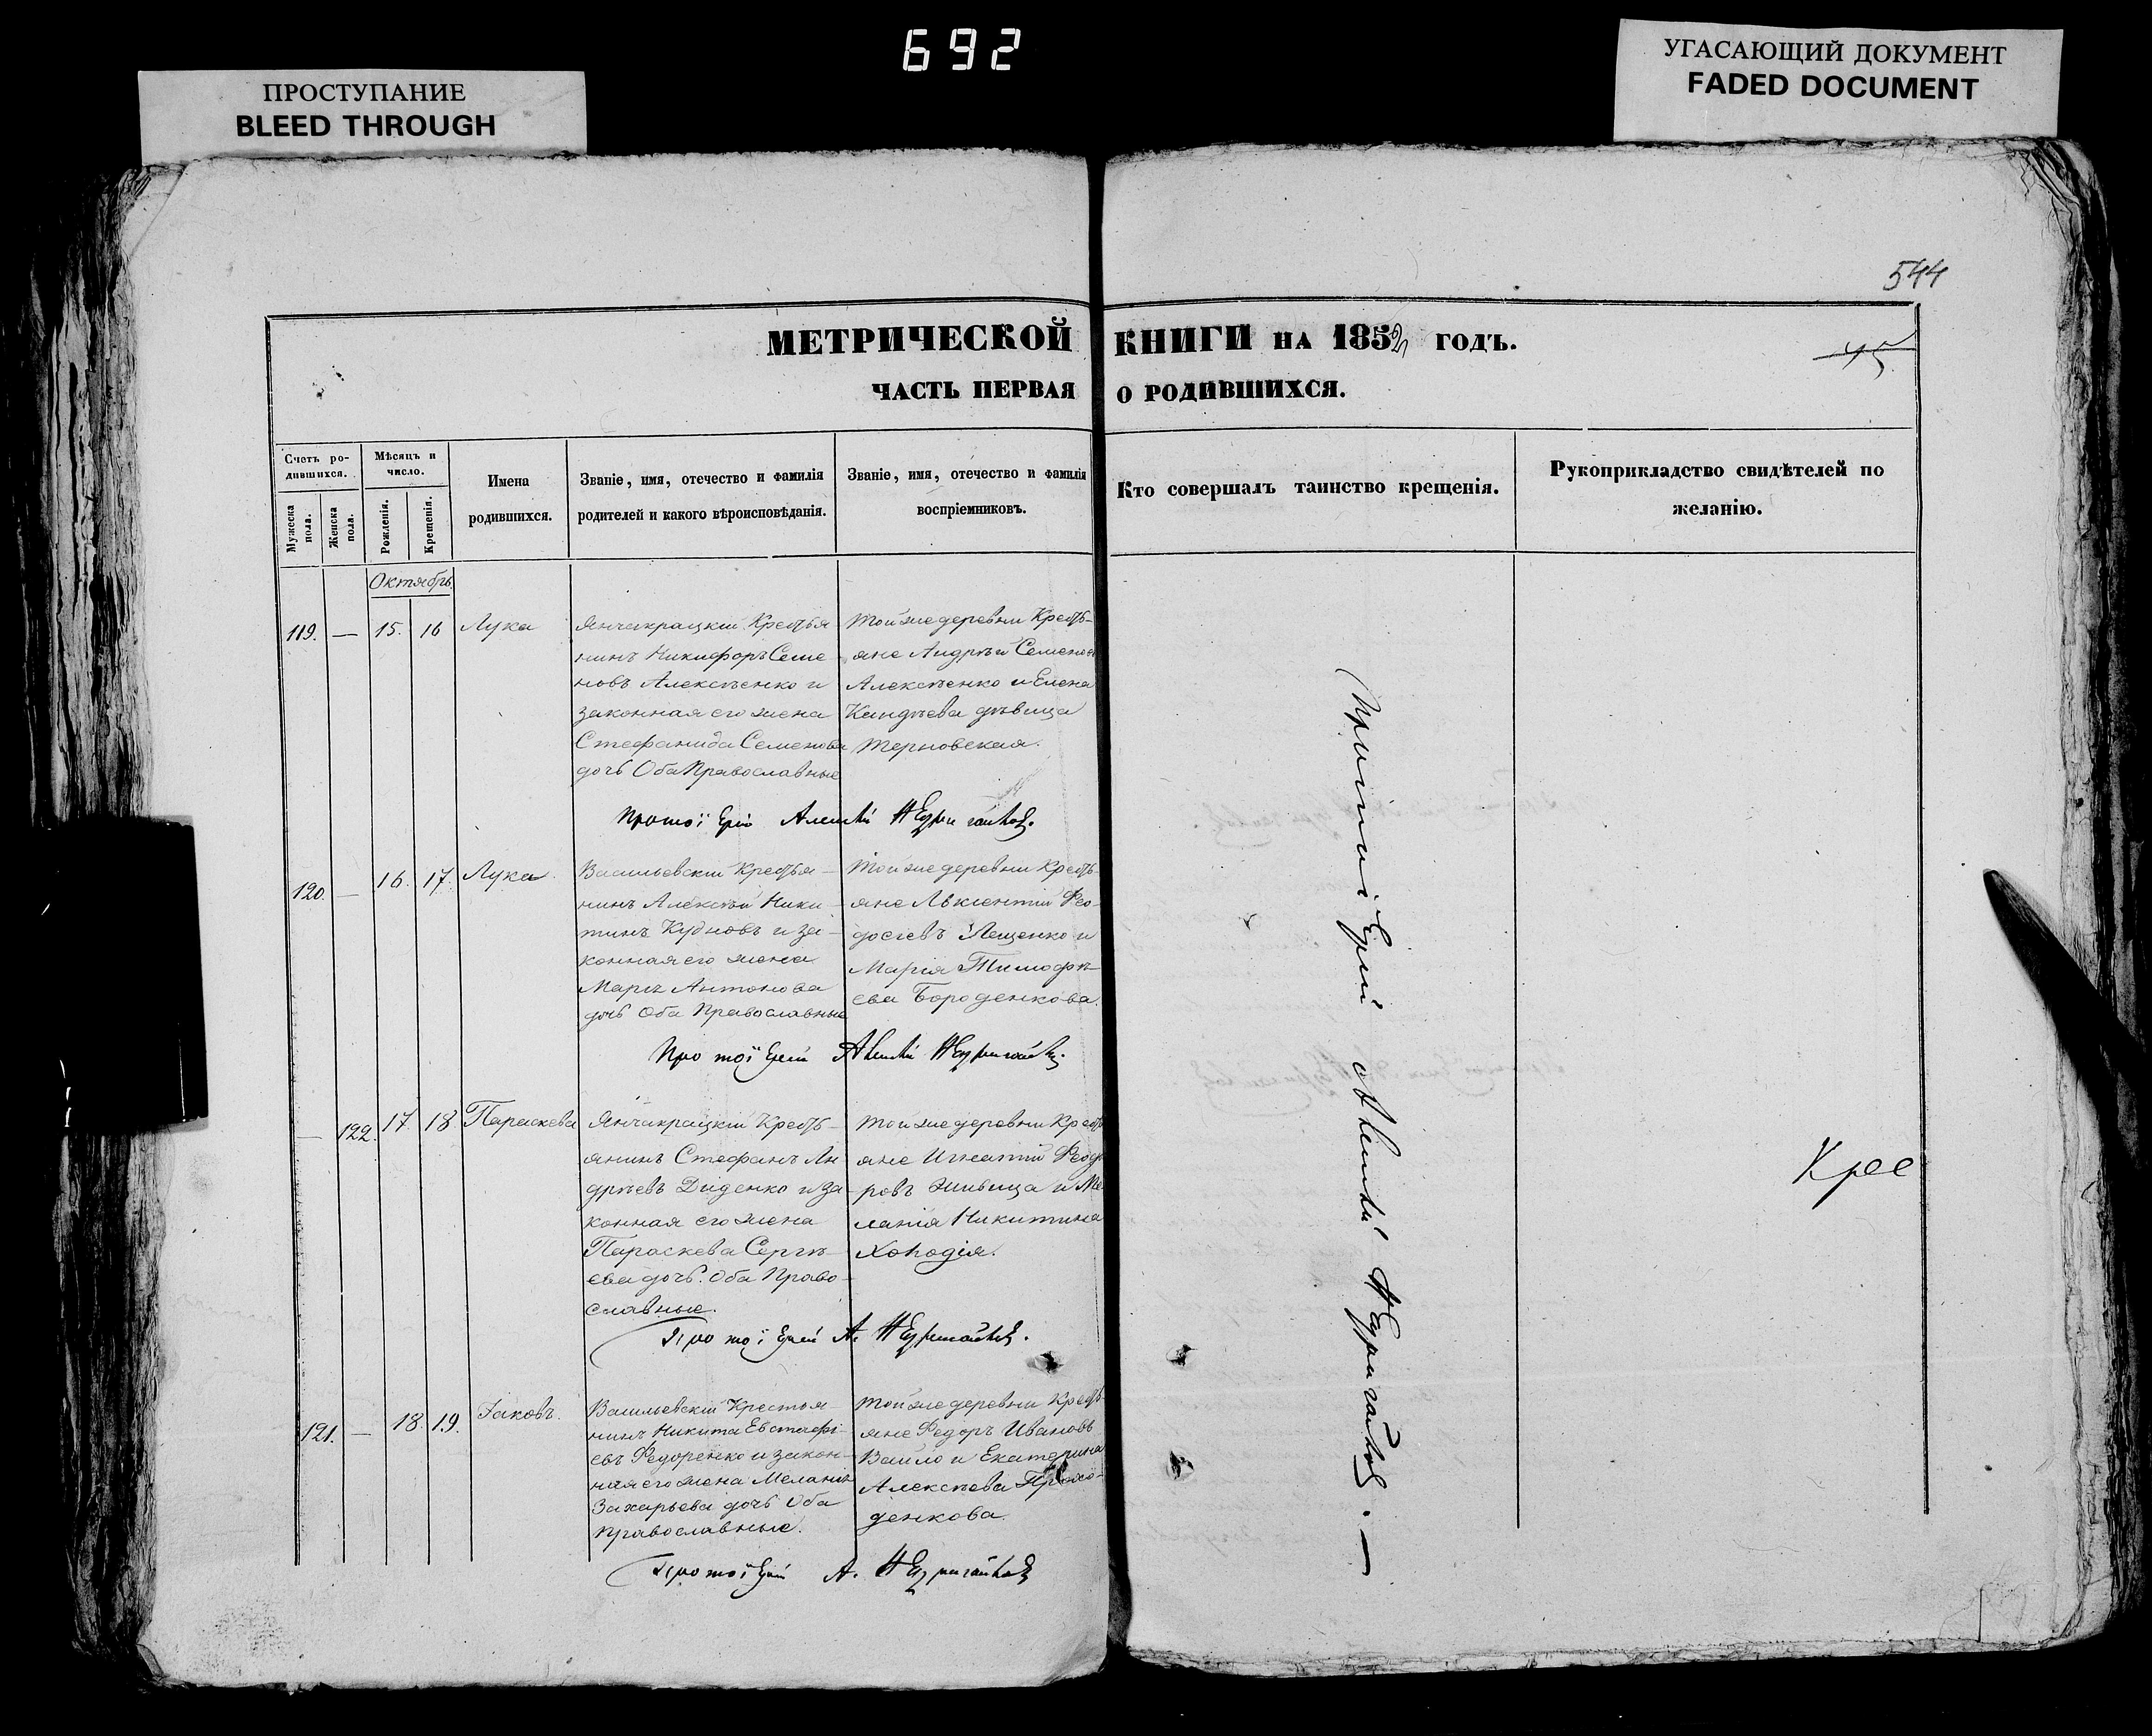 692
ПРОСТУПАНИЕ
BLEED THROUGH
УГАСАЮЩИЙ ДОКУМЕНТ
FADED DOCUMENT
544
МЕТРИЧЕСКОЙ КНИГИ НА 1852 ГОДЪ.
45
ЧАСТЬ ПЕРВАЯ О РОДИВШИХСЯ.
Счетъ ро-
дившихся.
Мужеска
пола.
Женска
пола.
Мѣсяцъ и
число.
Рожденія.
Крещенія.
Имена
родившихся.
Званіе, имя, отечество и фамилія
родителей и какого вѣроисповѣданія.
Званіе, имя, отечество и фамилія
воспріемниковъ.
Кто совершалъ таинство крещенія.
Рукоприкладство свидѣтелей по
желанію.
Октябрь
119. — 15. 16 Лука
Янчакрацкій Крестья
нинъ Никифоръ Семе
новъ Алексѣенко и
законная его жена
Стефанида Семенова
дочь Оба Православные
Той же деревни Кресть-
яне Андрѣй Семеновъ
Алексѣенко и Елена
дѣвица
Терновская.
Протоіерей Алексѣй
120. — 16. 17. Лука
Васильевскій Крестья-
нинъ Алексѣй Ники-
тинъ Кудновъ и за-
конная его жена
Марія Антонова
дочь Оба Православные
Той же деревни Кресть-
яне Авксентій Фео-
досіевъ Лещенко и
Марія Тимофѣ-
ева Бороденкова.
Протоіерей Алексѣй
— 122. 17. 18 Параскева
Янчакрацкій Кресть-
янинъ Стефанъ Ан
дрѣевъ Диденко и за
конная его жена
Параскева Сергѣ-
ева дочь. Оба Право-
славные.
Той же деревни Кресть
яне Игнатій Феодо
ровъ и Ме
ланія Никитина
Протоіерей А.
121. — 18. 19. Іаковъ.
Васильевскій Крестья-
нинъ Никита Евстафі-
евъ Федоренко и закон-
ная его жена Меланія
Захарьева дочь Оба
Православные.
Той же деревни Кресть
яне Федоръ Ивановъ
и Екатерина
Алексѣева
денкова
Протоіерей А.
Протоіерей Алексѣй
Крес